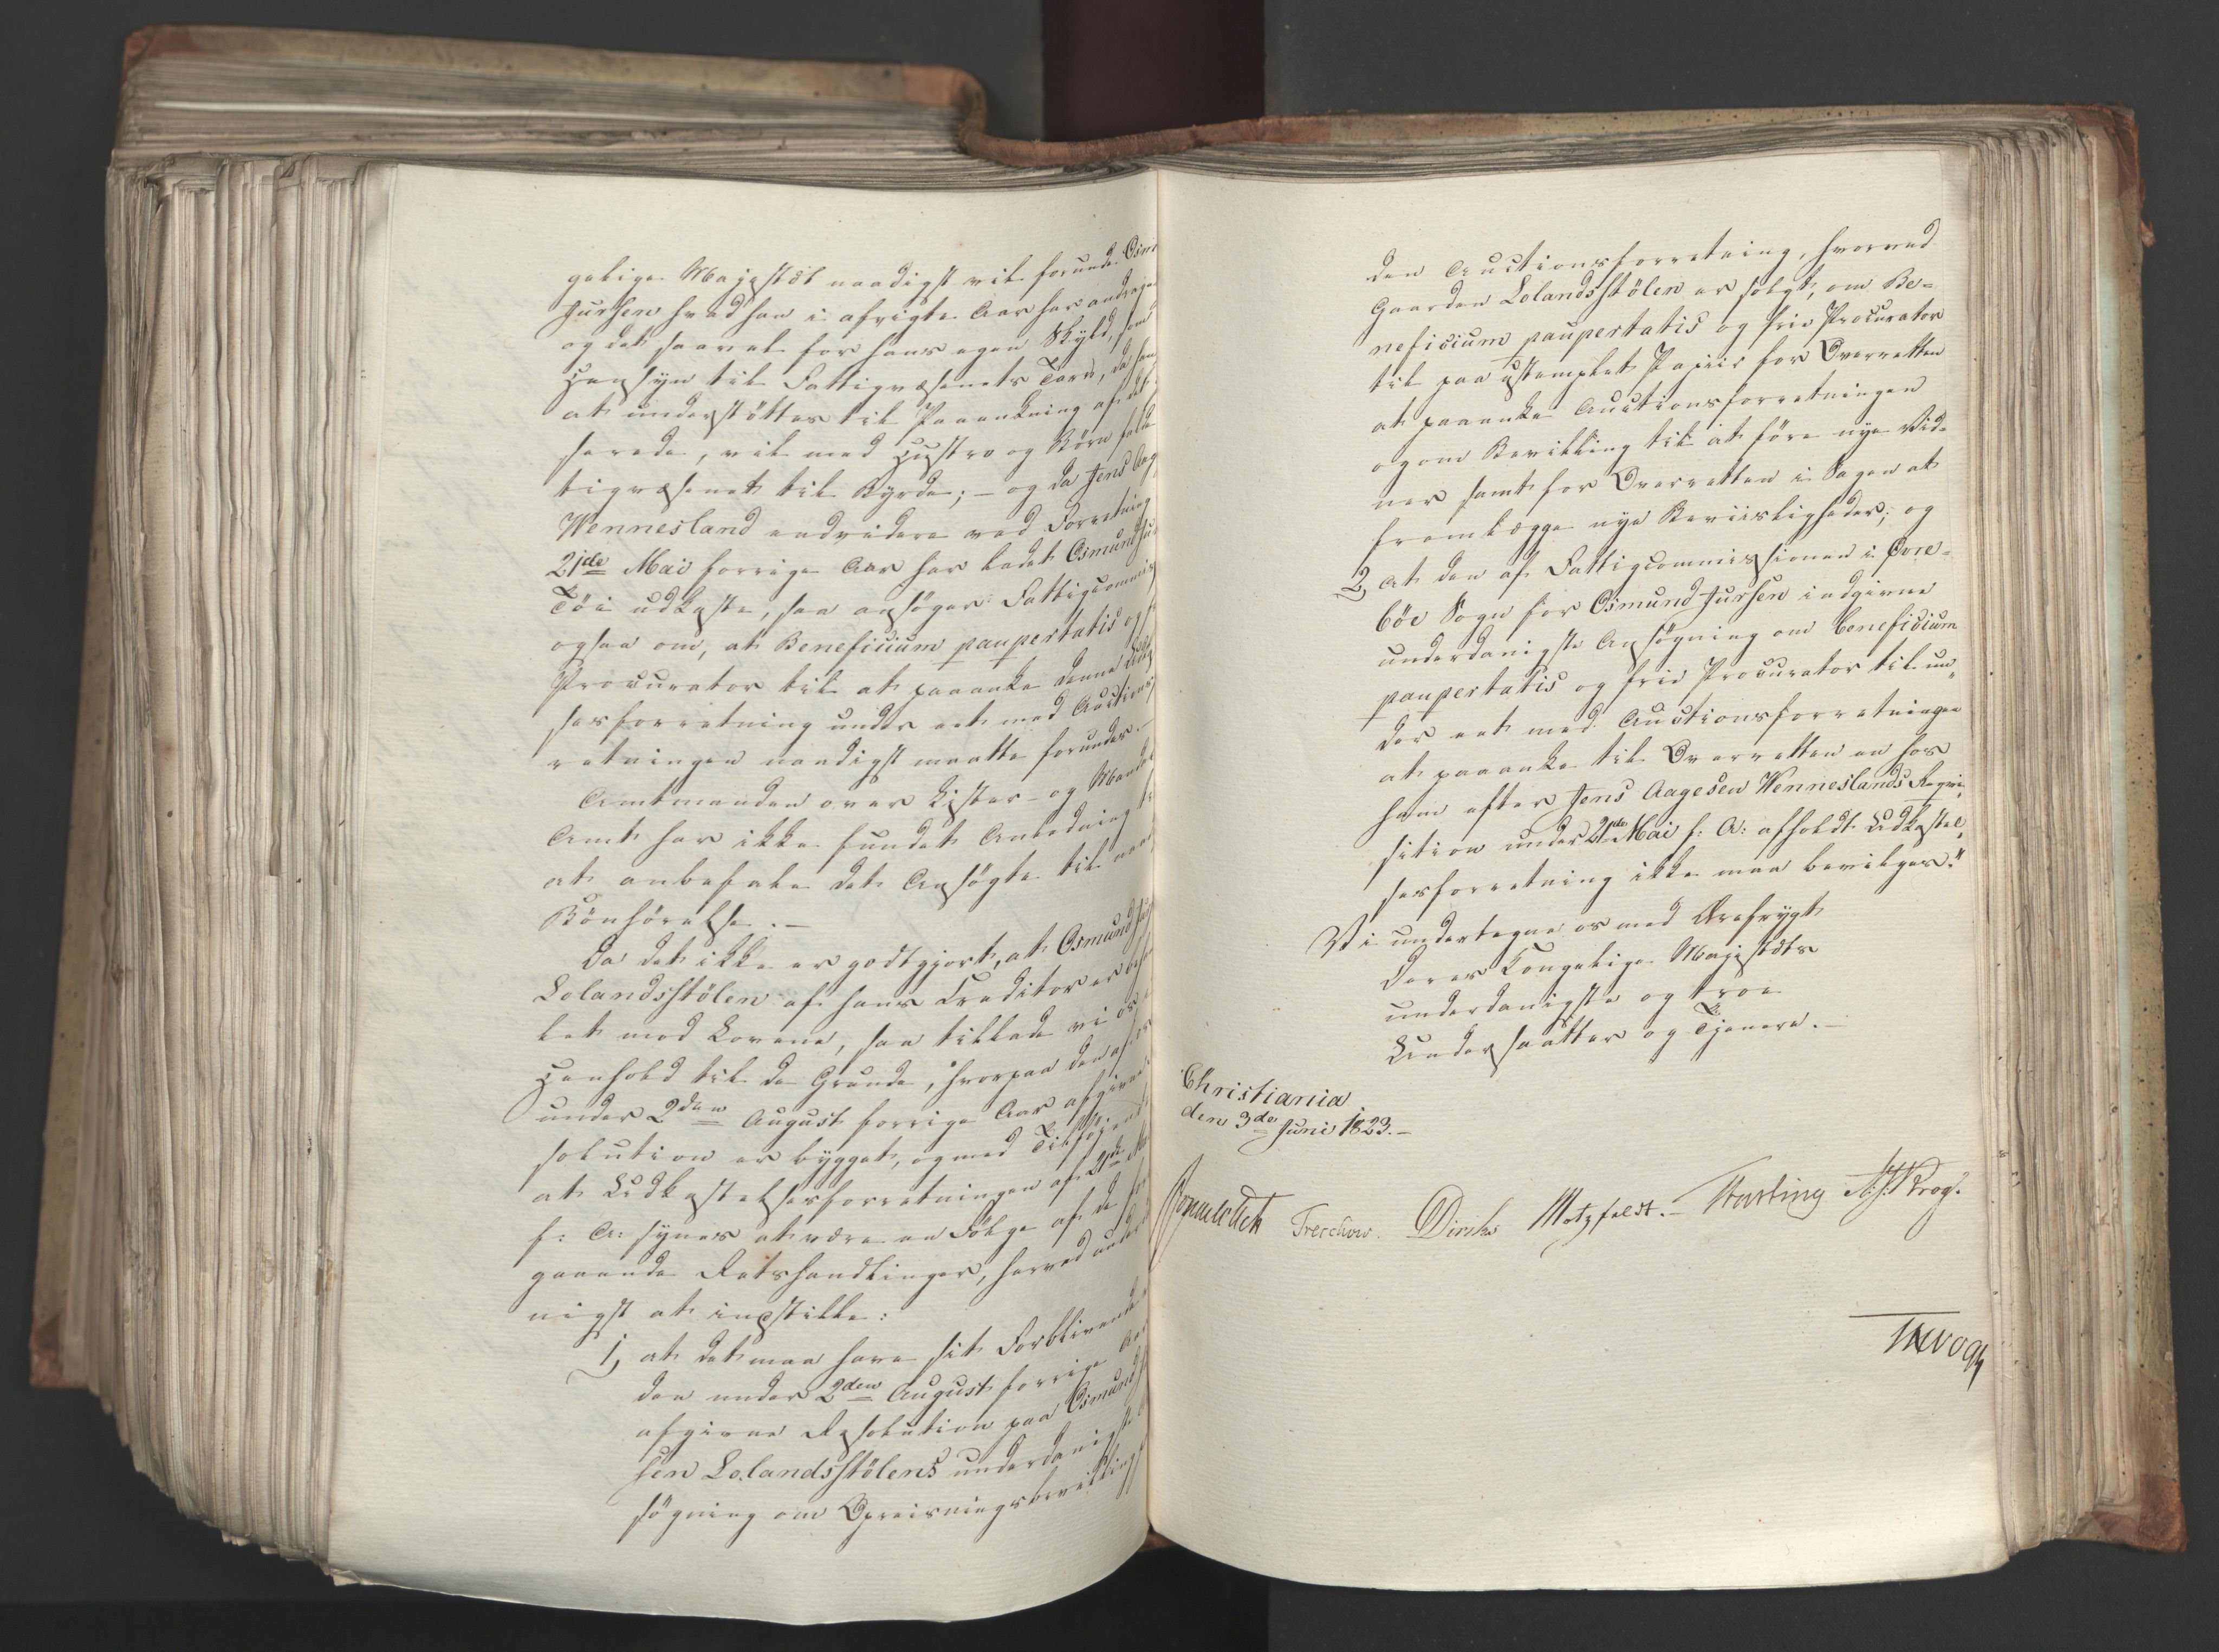 gelige Majestæt naadigst vil forunde Osm
Jursen hvad han i afvigte Aar har andrage
og det saavel for hans egen Skyld, som
Hensyn til Fattigvæsenets Tarv, da han
at understöttes til Paaankning af det
serede, vil med Hustro og Börn falde
tigvæsenet til Byrde; – og da Jens Aag
Wennesland endvidere ved Forretning
21de Mai forrige Aar har ladet Osmund Ju
Töi udkaste, saa ansöger Fattigcommis
ogsaa om, at Beneficium paupertatis og f
Procurator til at paaanke denne Udka
sesforretning under eet med Auctions
retningen naadigst maatte forundes. –
Amtmanden over Lister- og Mandal
Amt har ikke fundet Anledning til
at anbefale det Ansögte til naa
Bönhörelse. –
Da det ikke er godtgjort, at Osmund Ju
Lolandsstölen af hans Creditor er beha
let mod Lovene, saa tillade vi os, i
Henhold til de Grunde, hvorpaa den af os
under 2den August forrige Aar afgivne
solution er bygget, og med Tilföjende
at Udkastelsesforretningen af 21de Ma
f: A: synes at være en Fölge af de for
gaaende Retshandlinger, herved under
nigst at indstille:
1, at det maa have sit Forblivende
den under 2den August forrige Aar
afgivne Resolution paa Osmund J
sen Lolandsstölens underdanigste
søgning om Opreisningsbevilling
den Auctionsforretning, hvorved
Gaarden Lolandsstölen er solgt, om Be=
neficium paupertatis og frie Procurator
til paa ustemplet Papiir for Overretten
at paaanke Auctionsforretningen
og om Bevilling til at före nye Vid-
ner samt for Overretten i Sagen at
fremlægge nye Beviisligheder; og
2, at den af Fattigcommissionen i Övre=
böe Sogn for Osmund Jursen indgivne
underdanigste Ansögning om beneficium
paupertatis og frie Procurator til un„
der eet med Auctionsforretningen
at paaanke til Overretten en hos
ham efter Jens Aagesen Wenneslands Reqvi„
sition under 21de Mai f: A: afholdt Udkastel„
sesforretning ikke maa bevilges."
Vi undertegne os med Ærefrygt
Deres Kongelige Majestæts
underdanigste og troe
Undersaatter og Tjenere. –
Christiania
den 3de Juni 1823. –
Sommerhielm Treschow. Diriks Motzfeldt. – Fasting A. J. Krog.
Vogt